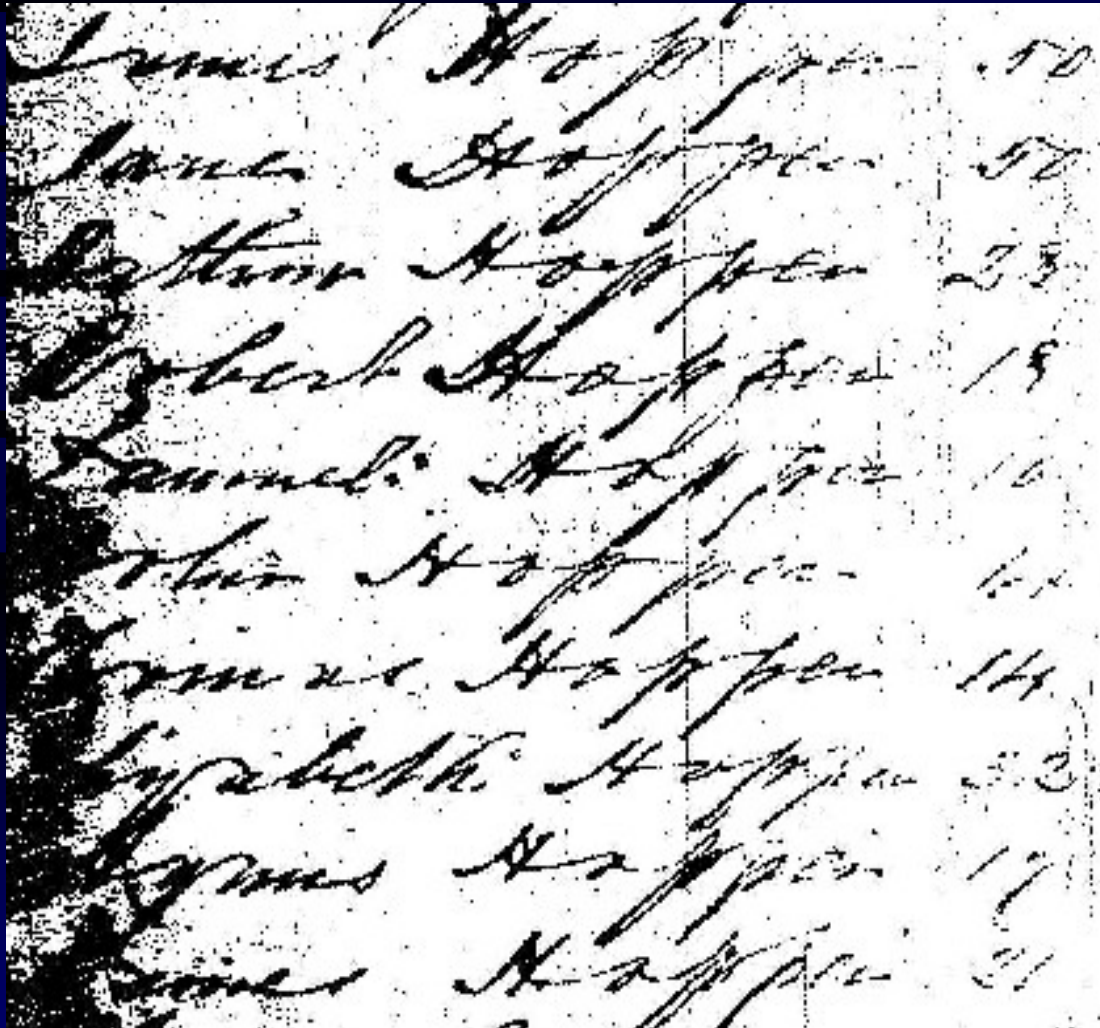 James Hopper 50
Jane Hopper 50
Hopper 23
Robert Hopper 18
Samuel Hopper
John Hopper
Thomas Hopper 14
Elizabeth Hopper
Agnus Hopper 17
James Hopper 21